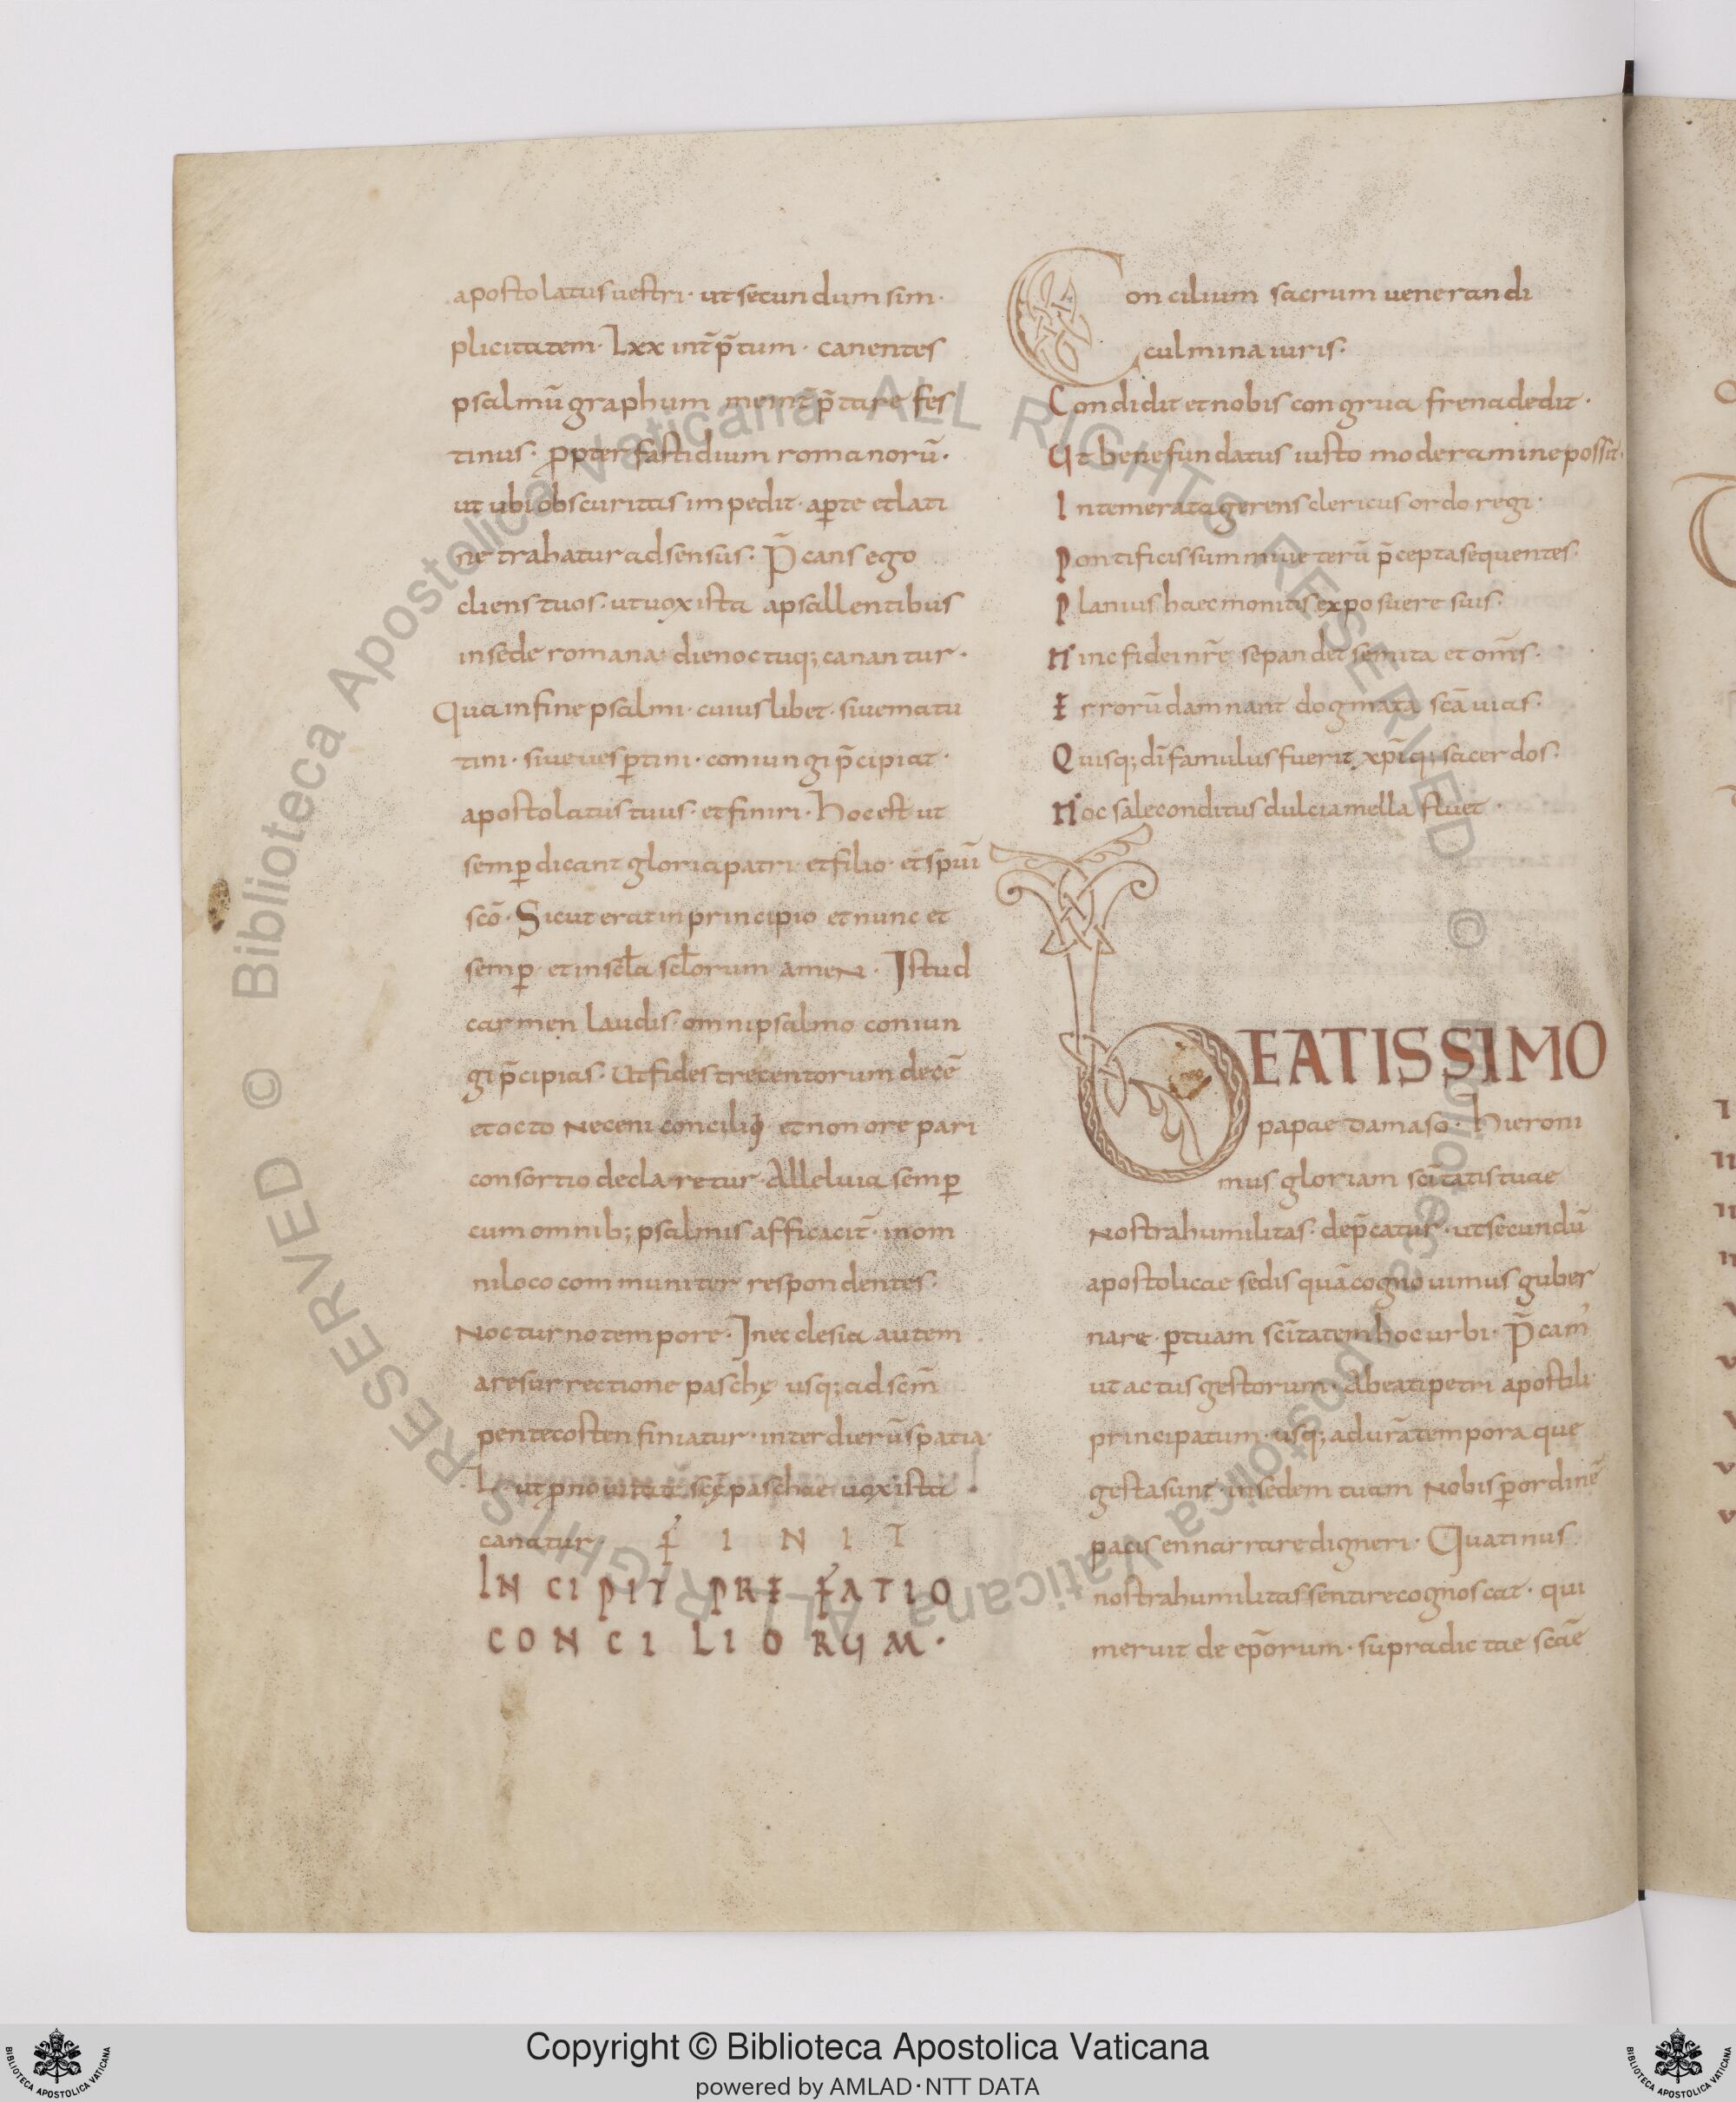 apostolatus uestri · ut secundum sim·
plicitatem · Lxx int̄p̄tum · canentes
psalmū graphum meint̄p̄tare fes
tinus · ꝓpter fastidium romanorū ·
ut ubi obscuritas impedit · aꝑte et lati
ne trahatur ad sensus · P̄cans ego
cliens tuos · ut uox ista apsallentibus
in sede romana · die noctuq; canantur ·
Qua in fine psalmi · cuius libet · siue matu
tini · siue uesꝑtini · coniungi p̄cipiat ·
apostolatus tuus · et finiri · Hoc est ut
semꝑ dicant gloria patri · et filio · et sp̄ui
scō · Sicut erat in principio et nunc et
semꝑ · et in scl̄a scl̄orum amen · Istud
carmen laudis · omni psalmo coniun
gi p̄cipias · Ut fides trecentorum decē
et octo Neceni concilii · et non ore pari
consortio declaretur · Alleluia semꝑ
cum omnib; psalmis afficacit̄ · in om
ni loco communiter respondentes ·
Nocturno tempore · In ecclesia autem
a resurrectione paschę usq; ad scm̄
pentecosten finiatur · inter dierū spatia ·
ut ꝓ nouitate scę paschae uox ista
canatur · FINIT
INCIPIT PREFATIO
CONCILIORUM ·
Concilium sacrum uenerandi
culmina iuris ·
Condidit et nobis congrua frena dedit ·
Ut bene fundatus iusto moderamine possit ·
Intemerata gerens clericus ordo regi ·
Pontificis summi ueterū p̄cepta sequentes ·
Planius haec monitis exposuere suis ·
Hinc fidei nr̄e se pandet semita et om̄s ·
Errorū damnant dogmata scā uias ·
Quisq; dī famulus fuerit xp̄iq; sacerdos ·
Hoc sale conditus dulcia mella fluet ·
BEATISSIMO
papae damaso · Hieroni
mus gloriam sc̄itatis tuae
Nostra humilitas · dep̄catur · ut secundū
apostolicae sedis quā cognouimus guber
nare · ꝑ tuam sc̄itatem hoc urbi · P̄cam'
ut actus gestorum · A beati petri apostili
principatum · usq; ad urā tempora que
gesta sunt · in sedem tuam Nobis ꝑ ordinē
pacis ennarrare digneri · Quatinus
nostra humilitas sentire cognoscat · qui
meruit de ep̄orum · supradictae scāe
Copyright © Biblioteca Apostolica Vaticana
powered by AMLAD·NTT DATA